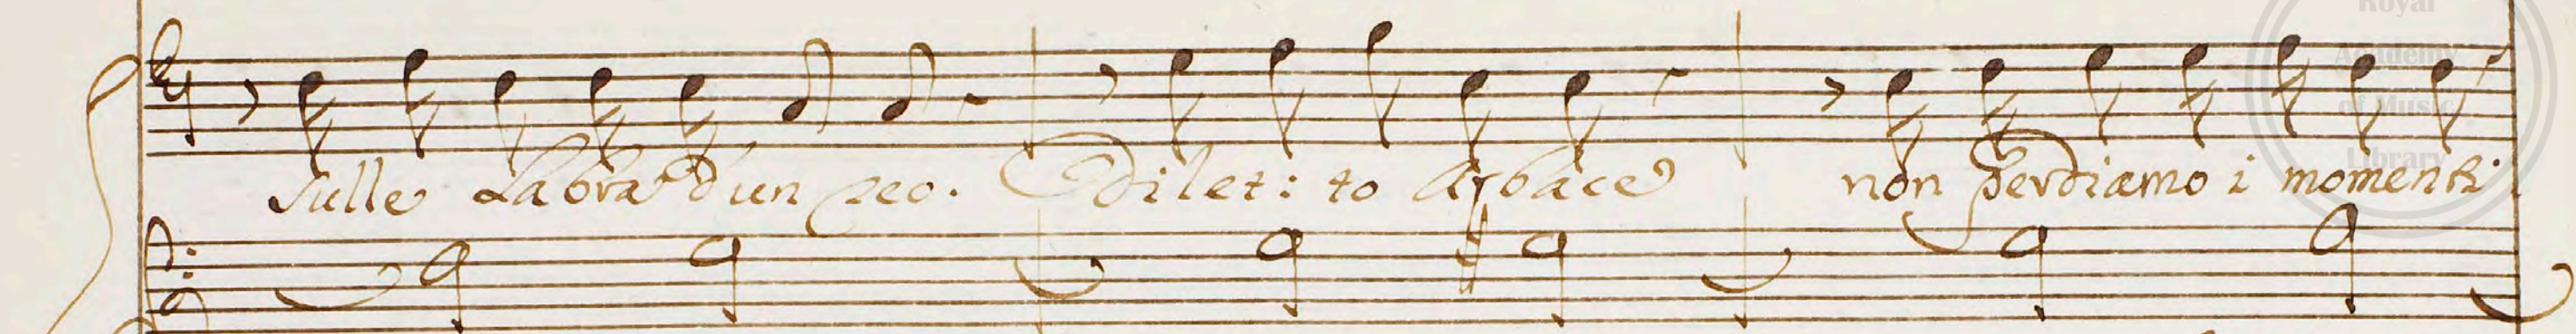 sulle Labra d'un reo. Dilet: to Arbace non perdiamo i momenti
Royal
Academy
of Music
Library